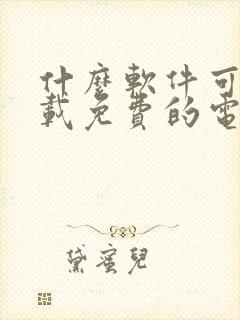 什麼軟件可
載免費的電
黛蜜兒